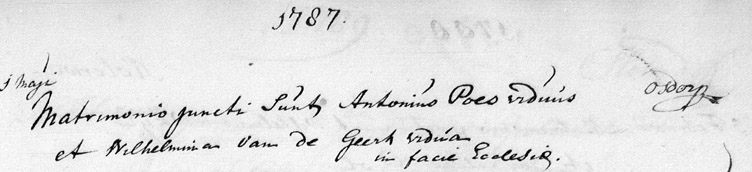 1787.
5 Maji
Matrimonio juncti Sunt Antonius Poes viduus Osdorp
et Wilhelmina Van de Geerk vidua
in facie Ecclesiæ.